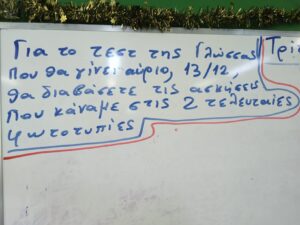 Για το τεστ της Γλώσσας
που θα γίνει αύριο, 13/12,
θα διαβάσετε τις ασκήσεις
που κάναμε στις 2 τελευταίες
φωτοτυπίες